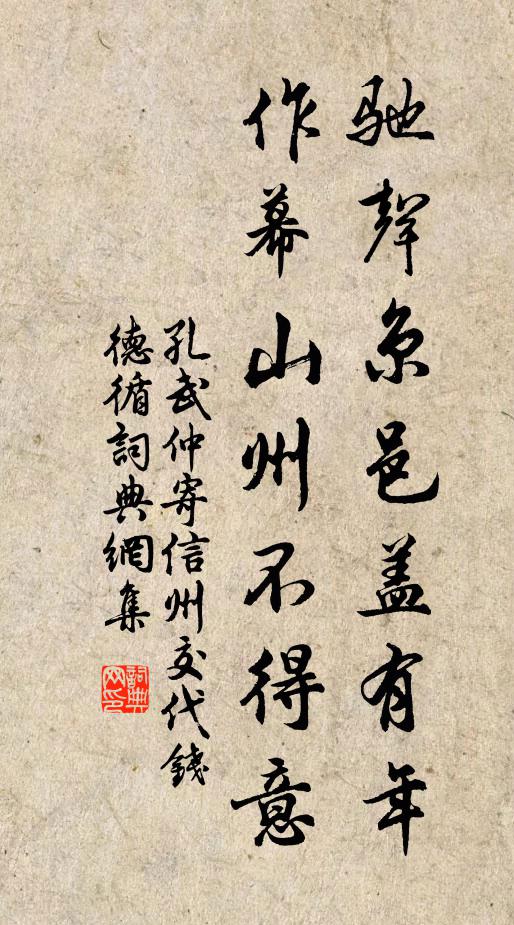 馳聲京邑盖有年
作幕山州不得意
孔武仲寄信州交代錢
德循詞典網集
詞典
网印